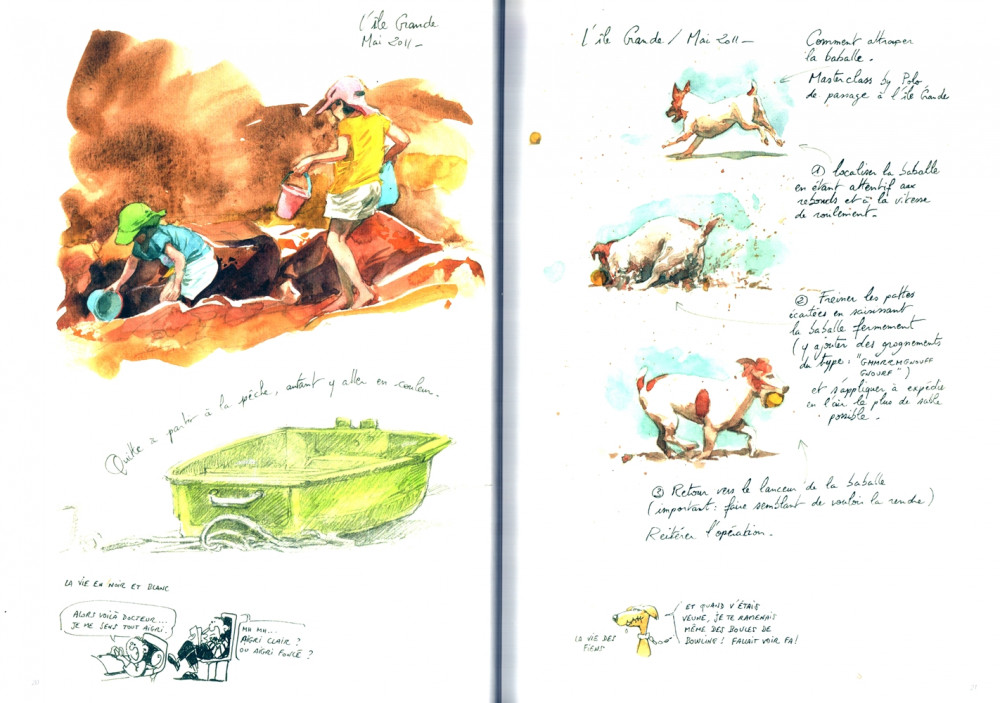 L'île Grande
Mai 2011_
Quitte à partir à la pêche, autant y aller en couleur.
LA VIE EN NOIR ET BLANC
ALORS VOILÀ DOCTEUR...
JE ME SENS TOUT AIGRI.
MH MH...
AIGRI CLAIR ?
OU AIGRI FONCÉ ?
L'île Grande / Mai 2011_
Comment attraper
la baballe.
Masterclass by Polo
de passage à l'île Grande
① localiser la baballe
en étant attentif aux
rebonds et à la vitesse
de roulement.
② Freiner les pattes
écartées en saisissant
la baballe fermement
(y ajouter des grognements
du type : "GHMRRMGNOUFF
GNOURF")
et s'appliquer à expédier
en l'air le plus de sable
possible.
③ Retour vers le lanceur de la baballe
(important : faire semblant de vouloir la rendre)
Réitérer l'opération.
LA VIE DES
FIENS
ET QUAND V'ÉTAIS
VEUNE, JE TE RAMENAIS
MÊME DES BOULES DE
BOWLING ! FALLAIT VOIR FA !